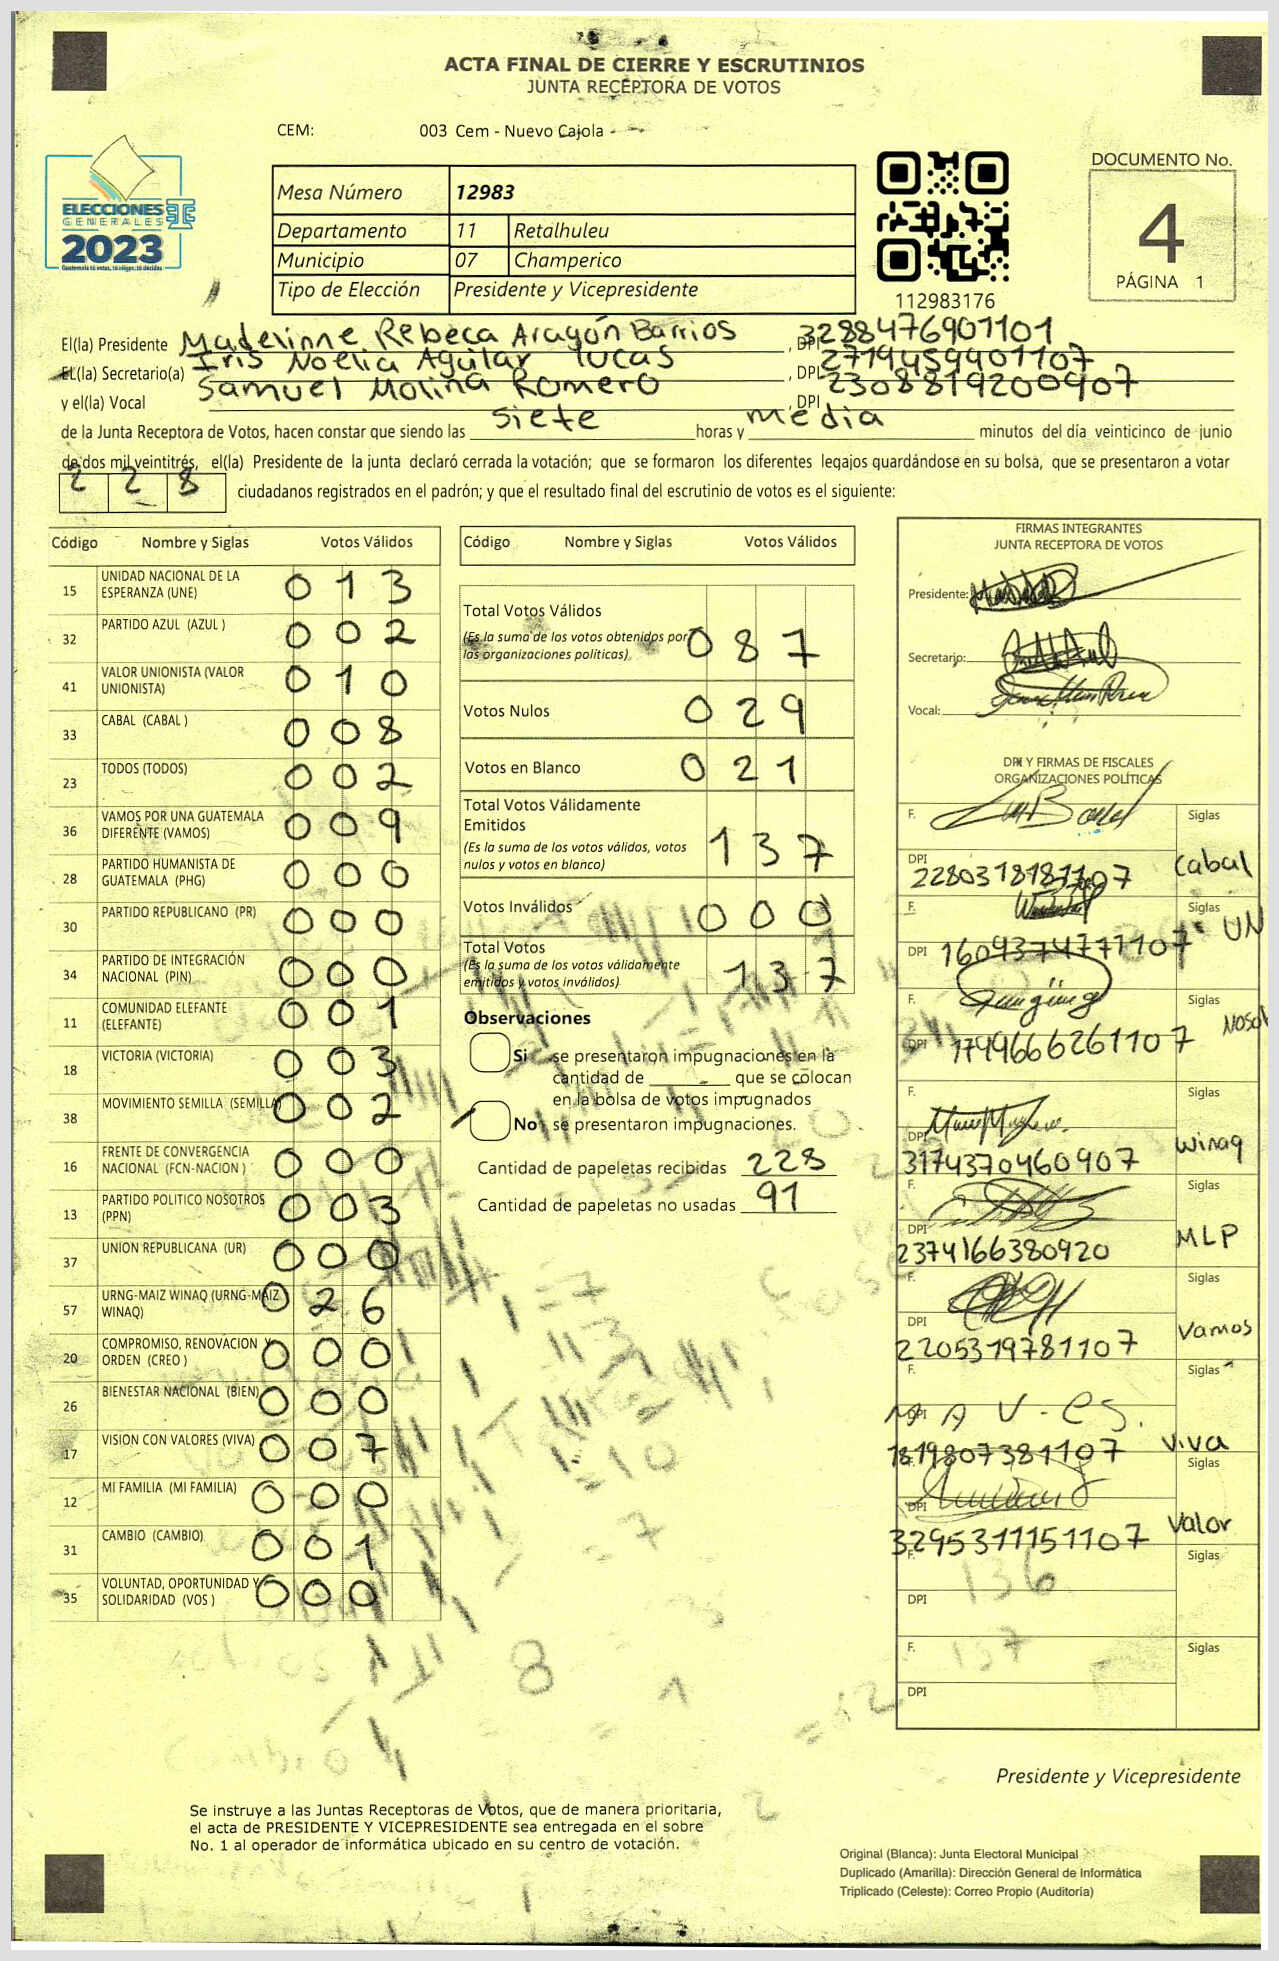 ACTA FINAL DE CIERRE Y ESCRUTINIOS
JUNTA RECEPTORA DE VOTOS
CEM: 003 Cem - Nuevo Cajola
ELECCIONES
GENERALES
2023
Guatemala tú votas, tú eliges, tú decides
Mesa Número 12983
Departamento 11 Retalhuleu
Municipio 07 Champerico
Tipo de Elección Presidente y Vicepresidente
112983176
DOCUMENTO No.
4
PÁGINA 1
El(la) Presidente Madelinne Rebeca Aragón Barrios, DPI 3288476901101
EL(la) Secretario(a) Iris Noelia Aguilar Lucas, DPI 2719459901107
y el(la) Vocal Samuel Molina Romero, DPI 2308819200907
de la Junta Receptora de Votos, hacen constar que siendo las siete horas y media minutos del día veinticinco de junio
de dos mil veintitrés, el(la) Presidente de la junta declaró cerrada la votación; que se formaron los diferentes legajos guardándose en su bolsa, que se presentaron a votar
228 ciudadanos registrados en el padrón; y que el resultado final del escrutinio de votos es el siguiente:
Código Nombre y Siglas Votos Válidos
15 UNIDAD NACIONAL DE LA ESPERANZA (UNE) 013
32 PARTIDO AZUL (AZUL ) 002
41 VALOR UNIONISTA (VALOR UNIONISTA) 010
33 CABAL (CABAL ) 008
23 TODOS (TODOS) 002
36 VAMOS POR UNA GUATEMALA DIFERENTE (VAMOS) 009
28 PARTIDO HUMANISTA DE GUATEMALA (PHG) 000
30 PARTIDO REPUBLICANO (PR) 000
34 PARTIDO DE INTEGRACIÓN NACIONAL (PIN) 000
11 COMUNIDAD ELEFANTE (ELEFANTE) 001
18 VICTORIA (VICTORIA) 003
38 MOVIMIENTO SEMILLA (SEMILLA) 002
16 FRENTE DE CONVERGENCIA NACIONAL (FCN-NACION ) 000
13 PARTIDO POLITICO NOSOTROS (PPN) 003
37 UNION REPUBLICANA (UR) 000
57 URNG-MAIZ WINAQ (URNG-MAIZ WINAQ) 026
20 COMPROMISO, RENOVACION Y ORDEN (CREO ) 000
26 BIENESTAR NACIONAL (BIEN) 000
17 VISION CON VALORES (VIVA) 007
12 MI FAMILIA (MI FAMILIA) 000
31 CAMBIO (CAMBIO) 001
35 VOLUNTAD, OPORTUNIDAD Y SOLIDARIDAD (VOS ) 000
Código Nombre y Siglas Votos Válidos
Total Votos Válidos
(Es la suma de los votos obtenidos por
las organizaciones políticas) 087
Votos Nulos 029
Votos en Blanco 021
Total Votos Válidamente
Emitidos
(Es la suma de los votos válidos, votos
nulos y votos en blanco) 137
Votos Inválidos 000
Total Votos
(Es la suma de los votos válidamente
emitidos y votos inválidos) 137
Observaciones
Si se presentaron impugnaciones en la
cantidad de ________ que se colocan
en la bolsa de votos impugnados
No se presentaron impugnaciones.
Cantidad de papeletas recibidas 228
Cantidad de papeletas no usadas 91
FIRMAS INTEGRANTES
JUNTA RECEPTORA DE VOTOS
Presidente:
Secretario:
Vocal:
DPI Y FIRMAS DE FISCALES
ORGANIZACIONES POLÍTICAS
F. Siglas
DPI 2280318181107 Cabal
F. Siglas
DPI 1609374771107 UN
F. Siglas
DPI 1749666261107 Nosot
F.
DPI 3174370460907 Winaq
F. Siglas
DPI 2374166380920 MLP
F. Siglas
DPI 2205319781107 Vamos
F. Siglas
DPI 1819807381107 Viva
Siglas
DPI 3295311151107 Valor
F. Siglas
136
DPI
F. Siglas
137
DPI
Presidente y Vicepresidente
Se instruye a las Juntas Receptoras de Votos, que de manera prioritaria,
el acta de PRESIDENTE Y VICEPRESIDENTE sea entregada en el sobre
No. 1 al operador de informática ubicado en su centro de votación.
Original (Blanca): Junta Electoral Municipal
Duplicado (Amarilla): Dirección General de Informática
Triplicado (Celeste): Correo Propio (Auditoría)